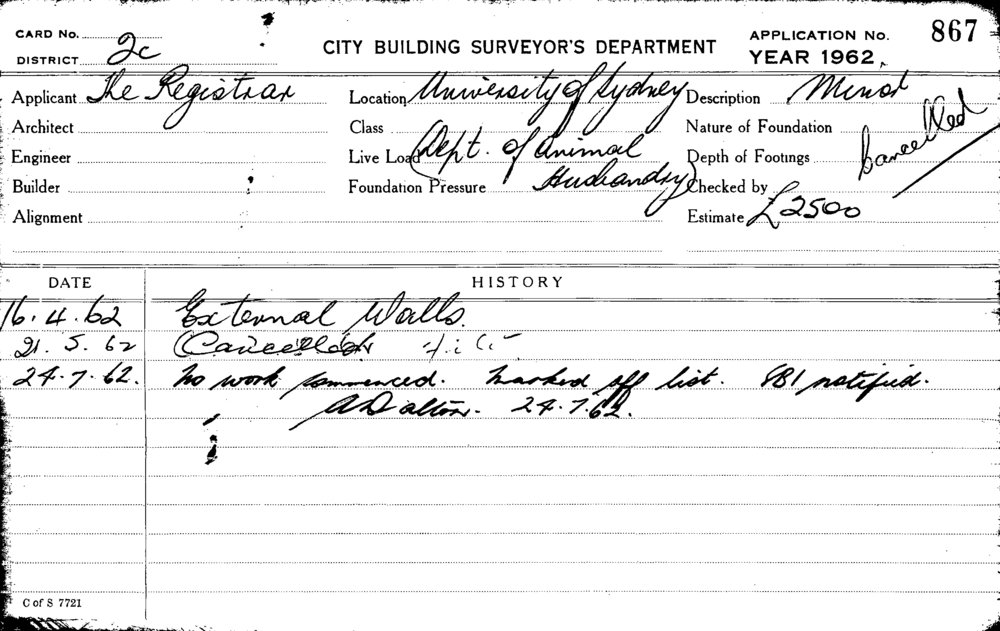 CARD No.
DISTRICT 2c
CITY BUILDING SURVEYOR'S DEPARTMENT
APPLICATION No. 867
YEAR 1962
Applicant The Registrar
Location University of Sydney
Description Minor
Architect
Class
Nature of Foundation
Cancelled
Engineer
Live Load (Dept. of Animal
Depth of Footings
Builder
Foundation Pressure Husbandry)
Checked by
Alignment
Estimate £2500
DATE
HISTORY
16.4.62 External Walls.
21.5.62 Cancelled
24.7.62. No work commenced. Marked off list. PBI notified.
A Dalton. 24.7.62.
C of S 7721